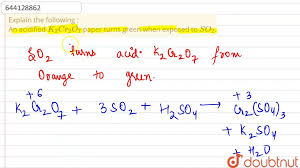 644128862
Explain the following :
An acidified K₂Cr₂O₇ paper turns green when exposed to SO₂.
SO2 turns acid. K2Cr2O7 from
Orange to green.
+6 +3
K2Cr2O7 + 3SO2 + H2SO4 → Cr2(SO4)3
+ K2SO4
+ H2O
doubtnut